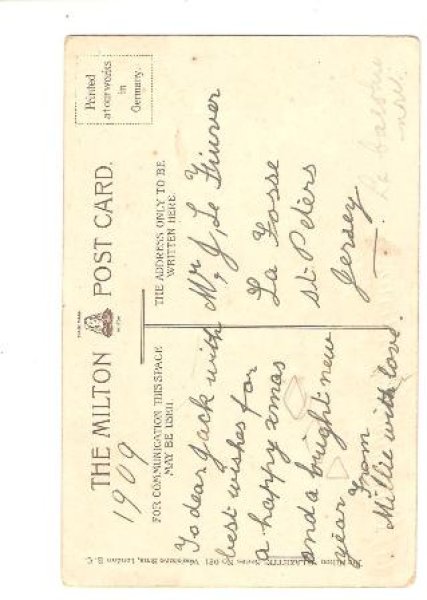 THE MILTON POST CARD.
TRADE MARK
Printed
at our works
in
Germany.
1909
FOR COMMUNICATION THIS SPACE
MAY BE USED.
THE ADDRESS ONLY TO BE
WRITTEN HERE
To dear Jack with
best wishes for
a happy xmas
and a bright new
year From
Millie with love.
Mr J, Le Feuver
La Fosse
St Peters
Jersey
Woolstone Bros, London E.C.